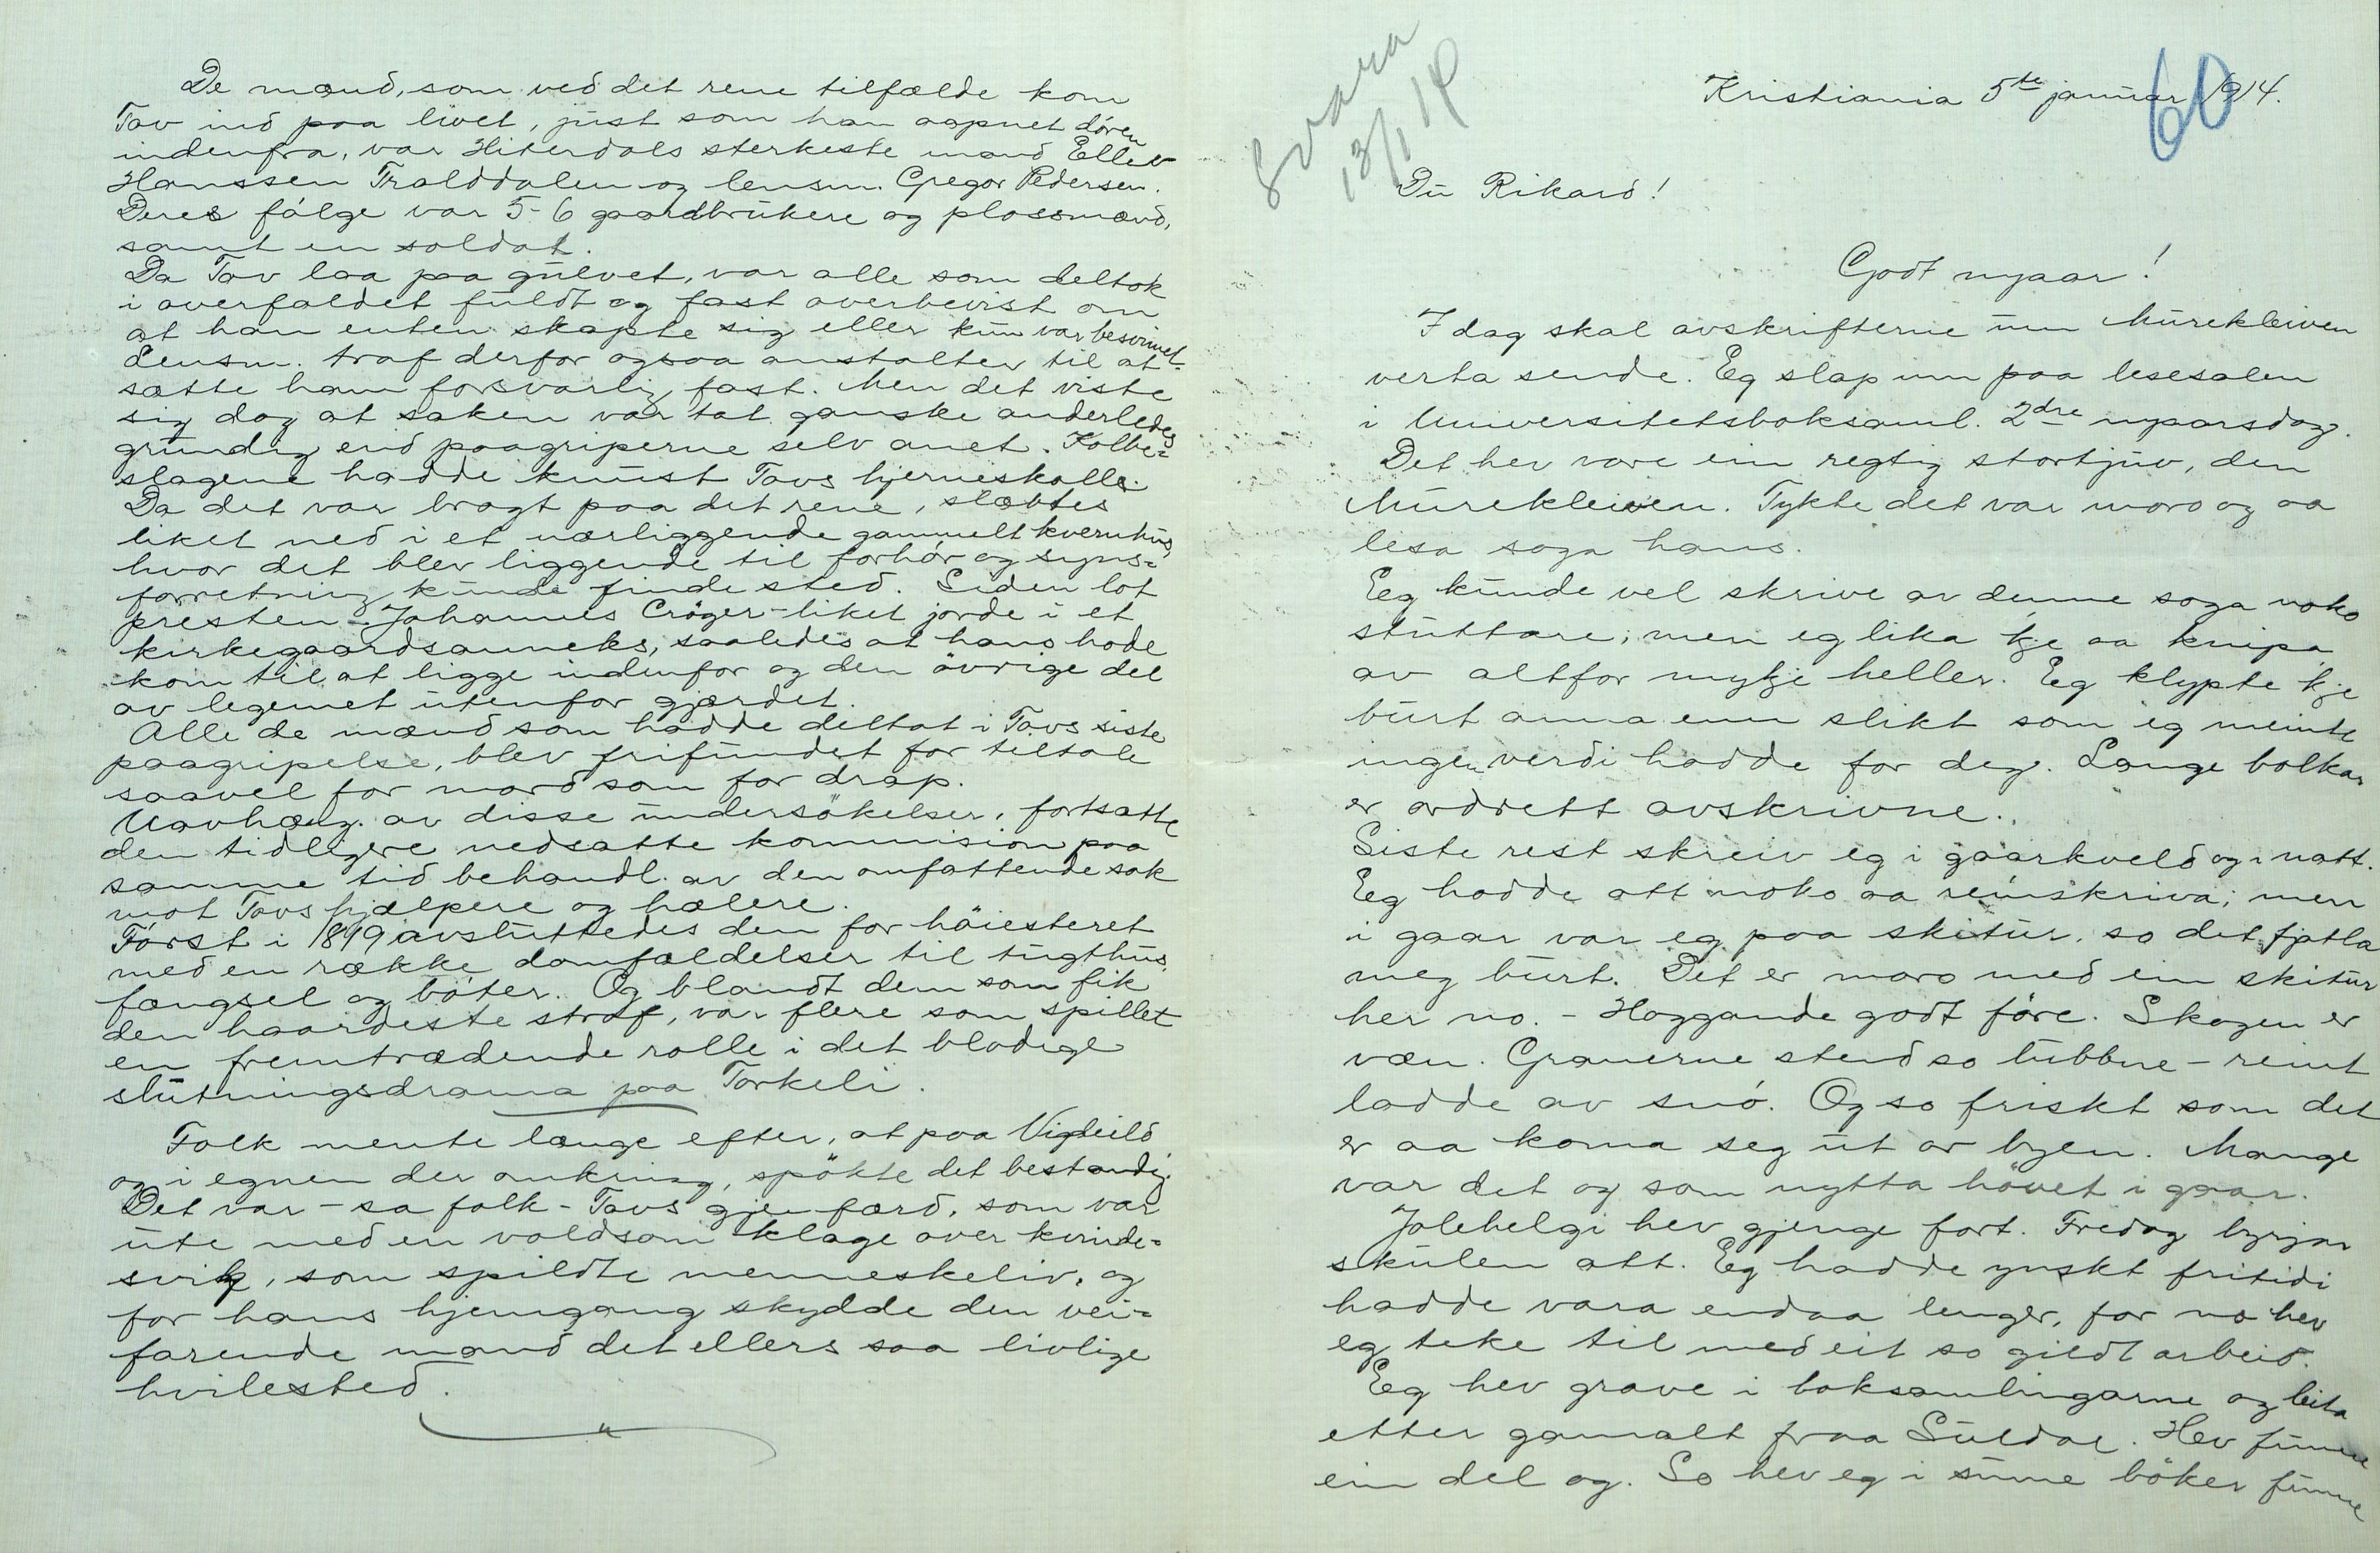 De mænd, som ved det rene tilfælde kom
Tov ind paa livet, just som han aapnet døren
indenfra, var Hiterdals sterkeste mand Ellev
Hanssen Tralddalen og lensm. Gregor Pedersen.
Deres følge var 5-6 gaardbrukere og plassmænd,
samt en soldat.
Da Tov laa paa gulvet, var alle som deltok
i overfaldet fuldt og fast overbevist om
at han enten skapte sig eller kun var besvimet.
Lensm. traf derfor ogsaa anstalter til at
sætte ham forsvarlig fast. Men det viste
sig dog at saken var tat ganske anderledes
grundig end paagriperne selv anet. Kolbe=
slagene hadde knust Tovs hjerneskalle.
Da det var bragt paa det rene, slæbtes
liket ned i et nærliggende gammelt kvernhus,
hvor det blev liggende til forhør og syns=
forretning kunde finde sted. Siden lot
presten - Johannes Crøger - liket jorde i et
kirkegaardsanneks, saaledes at hans hode
kom til at ligge indenfor og den øvrige del
av legemet utenfor gjærdet.
Alle de mænd som hadde deltat i Tovs siste
paagripelse, blev frifundet for tiltale
saavel for mord som for drap.
Uavhæng. av disse undersøkelser, fortsatte
den tidligere nedsatte kommision paa
samme tid behandl. av den omfattende sak
mot Tovs hjælpere og hælere.
Først i 1819 avsluttedes den for høiesteret
med en række domfældelser til tugthus,
fængsel og bøter. Og blandt dem som fik
den haardeste straf, var flere som spillet
en fremtrædende rolle i det blodige
slutningsdrama paa Torkeli.
Folk mente længe efter, at paa
og i egnen der omkring, spøkte det bestandig.
Det var - sa folk - Tovs gjenfærd, som var
ute med en voldsom klage over kvinde=
svik, som spildte menneskeliv, og
for hans hjemgang skydde den vei=
farende mand det ellers saa livlige
hvilested.
Svara
13/1 14
60
Kristiania 5te januar 1914.
Du Rikard!
Godt nyaar!
I dag skal avskrifterne um Murekleiven
verta sende. Eg slap inn paa lesesalen
i Universitetsboksaml. 2dre nyaarsdag.
Det hev vore ein regtig stortjuv, den
Murekleiven. Tykte det var moro og aa
lesa soga hans.
Eg kunde vel skrive av denne soga noko
stuttare; men eg lika kje aa knipa
av altfor mykje heller. Eg klypte kje
burt anna enn slikt som eg meinte
ingen verdi hadde for deg. Lange bolkar
er ordrett avskrivne.
Siste rest skreiv eg i gaarkveld og i natt.
Eg hadde att noko aa reinskriva; men
i gaar var eg paa skitur, so det fjatla
meg burt. Det er moro med ein skitur
her no. - Hoggande godt føre. Skogen er
væn. Granerne stend so lubbne - reint
ladde av snø. Og so friskt som det
er aa koma seg ut or byen. Mange
var det og som nytta høvet i gaar.
Jolehelgi hev gjenge fort. Fredag byrjar
skulen att. Eg hadde ynskt fritidi
hadde vara endaa lenger, for no hev
eg teke til med eit so gildt arbeid.
Eg hev grave i boksamlingarne og leita
etter gamalt fraa Suldal. Hev funne
ein del og. So hev eg i sume bøker funne